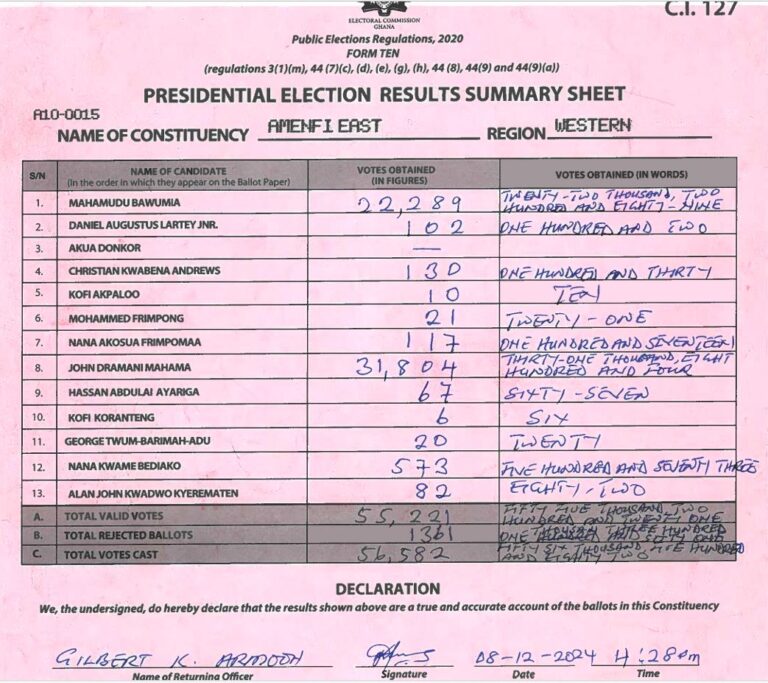 C.I. 127
ELECTORAL COMMISSION
GHANA
Public Elections Regulations, 2020
FORM TEN
(regulations 3(1)(m), 44 (7)(c), (d), (e), (g), (h), 44 (8), 44(9) and 44(9)(a))
PRESIDENTIAL ELECTION RESULTS SUMMARY SHEET
A10-0015
NAME OF CONSTITUENCY AMENFI EAST REGION WESTERN
S/N NAME OF CANDIDATE (In the order in which they appear on the Ballot Paper) VOTES OBTAINED (IN FIGURES) VOTES OBTAINED (IN WORDS)
1. MAHAMUDU BAWUMIA 22,289 TWENTY-TWO THOUSAND, TWO HUNDRED AND EIGHTY-NINE
2. DANIEL AUGUSTUS LARTEY JNR. 102 ONE HUNDRED AND TWO
3. AKUA DONKOR —
4. CHRISTIAN KWABENA ANDREWS 130 ONE HUNDRED AND THIRTY
5. KOFI AKPALOO 10 TEN
6. MOHAMMED FRIMPONG 21 TWENTY-ONE
7. NANA AKOSUA FRIMPOMAA 117 ONE HUNDRED AND SEVENTEEN
8. JOHN DRAMANI MAHAMA 31,804 THIRTY-ONE THOUSAND, EIGHT HUNDRED AND FOUR
9. HASSAN ABDULAI AYARIGA 67 SIXTY-SEVEN
10. KOFI KORANTENG 6 SIX
11. GEORGE TWUM-BARIMAH-ADU 20 TWENTY
12. NANA KWAME BEDIAKO 573 FIVE HUNDRED AND SEVENTY THREE
13. ALAN JOHN KWADWO KYEREMATEN 82 EIGHTY-TWO
A. TOTAL VALID VOTES 55,221 FIFTY FIVE THOUSAND, TWO HUNDRED AND TWENTY ONE
B. TOTAL REJECTED BALLOTS 1361 ONE THOUSAN THREE HUNDRED AND SIXTY ONE
C. TOTAL VOTES CAST 56,582 FIFTY SIX THOUSAND, FIVE HUNDRED AND EIGHTY TWO
DECLARATION
We, the undersigned, do hereby declare that the results shown above are a true and accurate account of the ballots in this Constituency
GILBERT K. 08-12-2024 4:28pm
Name of Returning Officer Signature Date Time